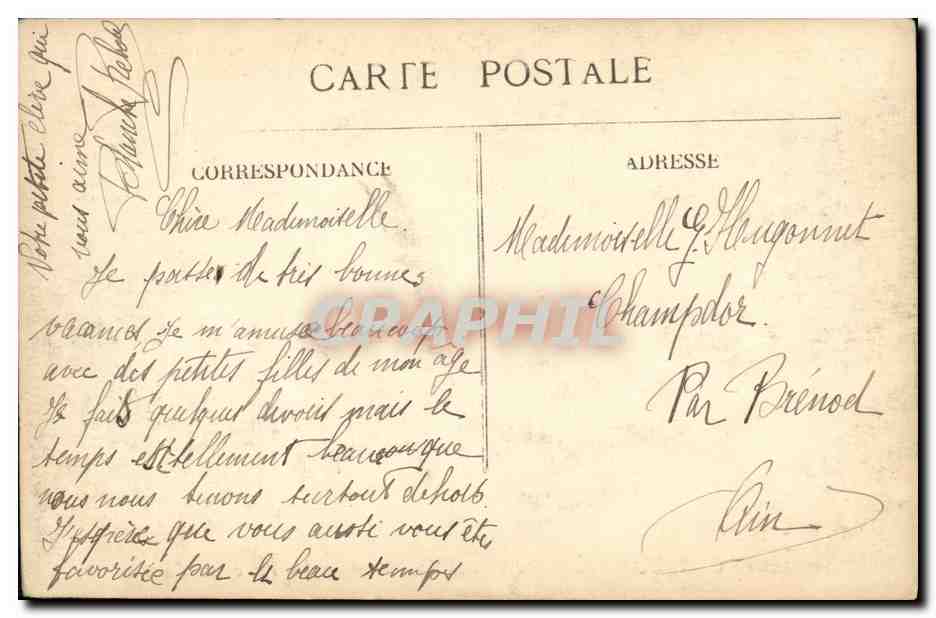 CARTE POSTALE
CORRESPONDANCE
ADRESSE
Chère Mademoiselle.
Je passe de très bonnes
vacances. Je m'amuse beaucoup
avec des petites filles de mon age
Je fais quelques devoirs mais le
temps est tellement beaucou que
nous nous tenons surtout dehors
J'espère que vous aussi vous êtes
favorisée par le beau temps
Votre petite élève qui
vous aime
Mademoiselle G. Hugonnet
Champdor.
Par Brénod
Ain
CRAPHIL